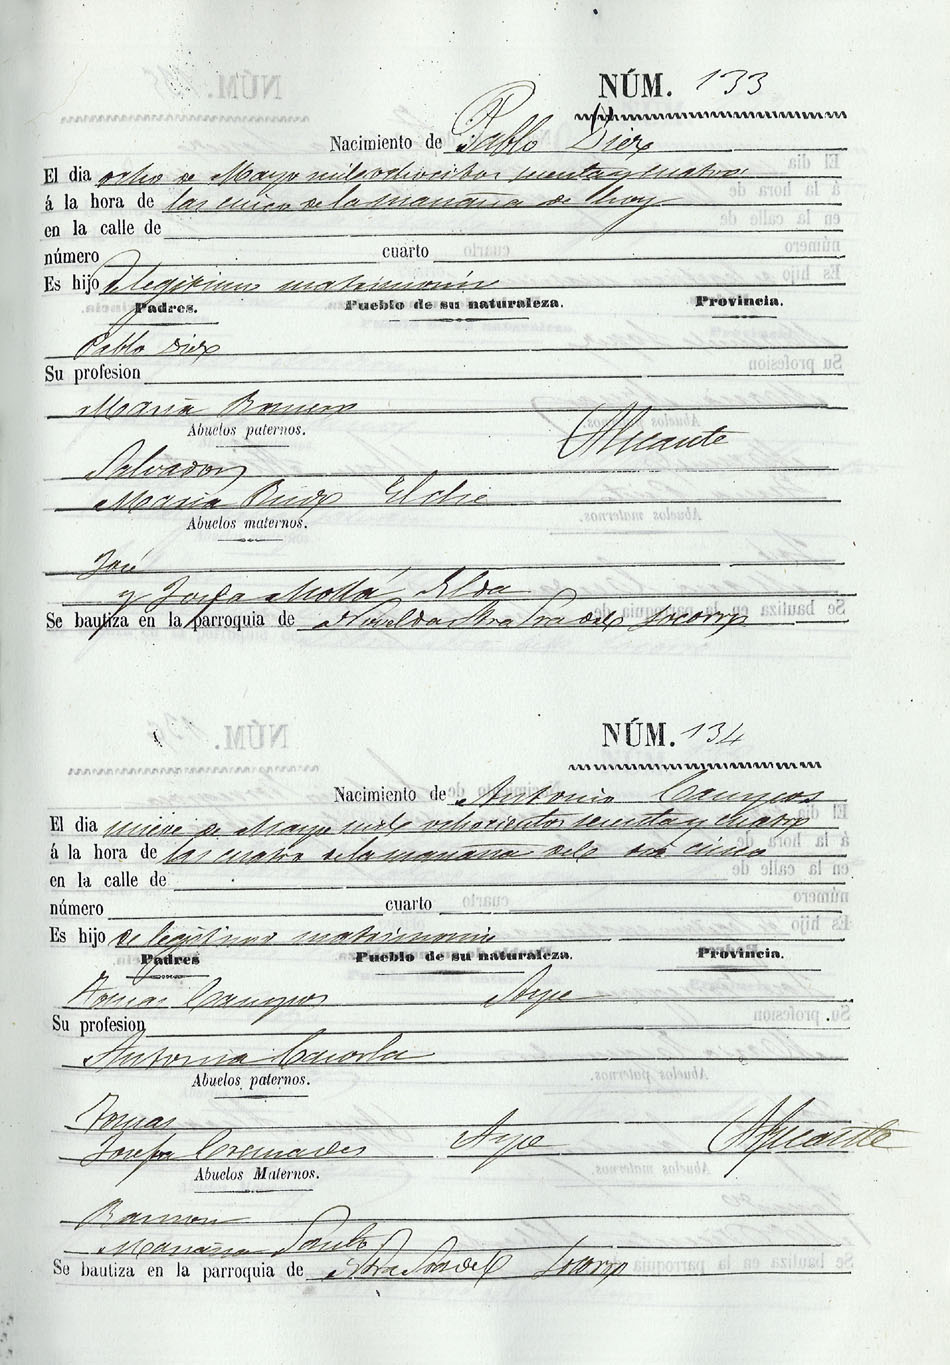 NÚM. 133
Nacimiento de Pablo Diez
El dia ocho de Mayo mil ochocientos setenta y cuatro
á la hora de las cinco de la mañana de hoy
en la calle de
número cuarto
Es hijo legitimo matrimonio
Padres. Pueblo de su naturaleza. Provincia.
Pablo Diez
Su profesion
Maria Romero
Abuelos paternos.
Alicante
Salvador
Maria Elche
Abuelos maternos.
José
y Josefa Mollá Elda
Se bautiza en la parroquia de Ntra Sra del Socorro
NÚM. 134
Nacimiento de Antonio Campos
El dia nueve de Mayo mil ochocientos setenta y cuatro
á la hora de las cuatro de la mañana del
en la calle de
número cuarto
Es hijo de legitimo matrimonio
Padres Pueblo de su naturaleza. Provincia.
Tomas Campos Aspe
Su profesion
Antonia Cazorla
Abuelos paternos.
Tomas
Josefa Cremades Aspe Alicante
Abuelos Maternos.
Ramon
Mariana
Se bautiza en la parroquia de Ntra Sra del Socorro